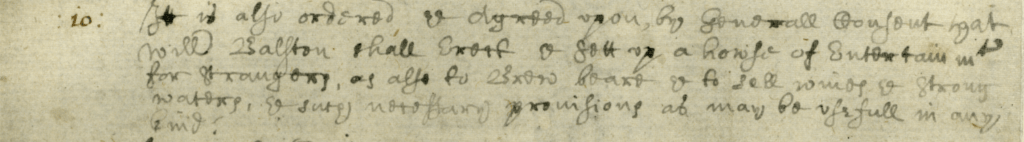 10: It is also ordered & Agreed upon, by Generall Consent that
Will Balston shall Erect & sett up a howse of Entertainmt
for Strangers, as also to Brew beare & to sell wines & strong
waters, & such necessary provisions as may be usefull in any
kind: